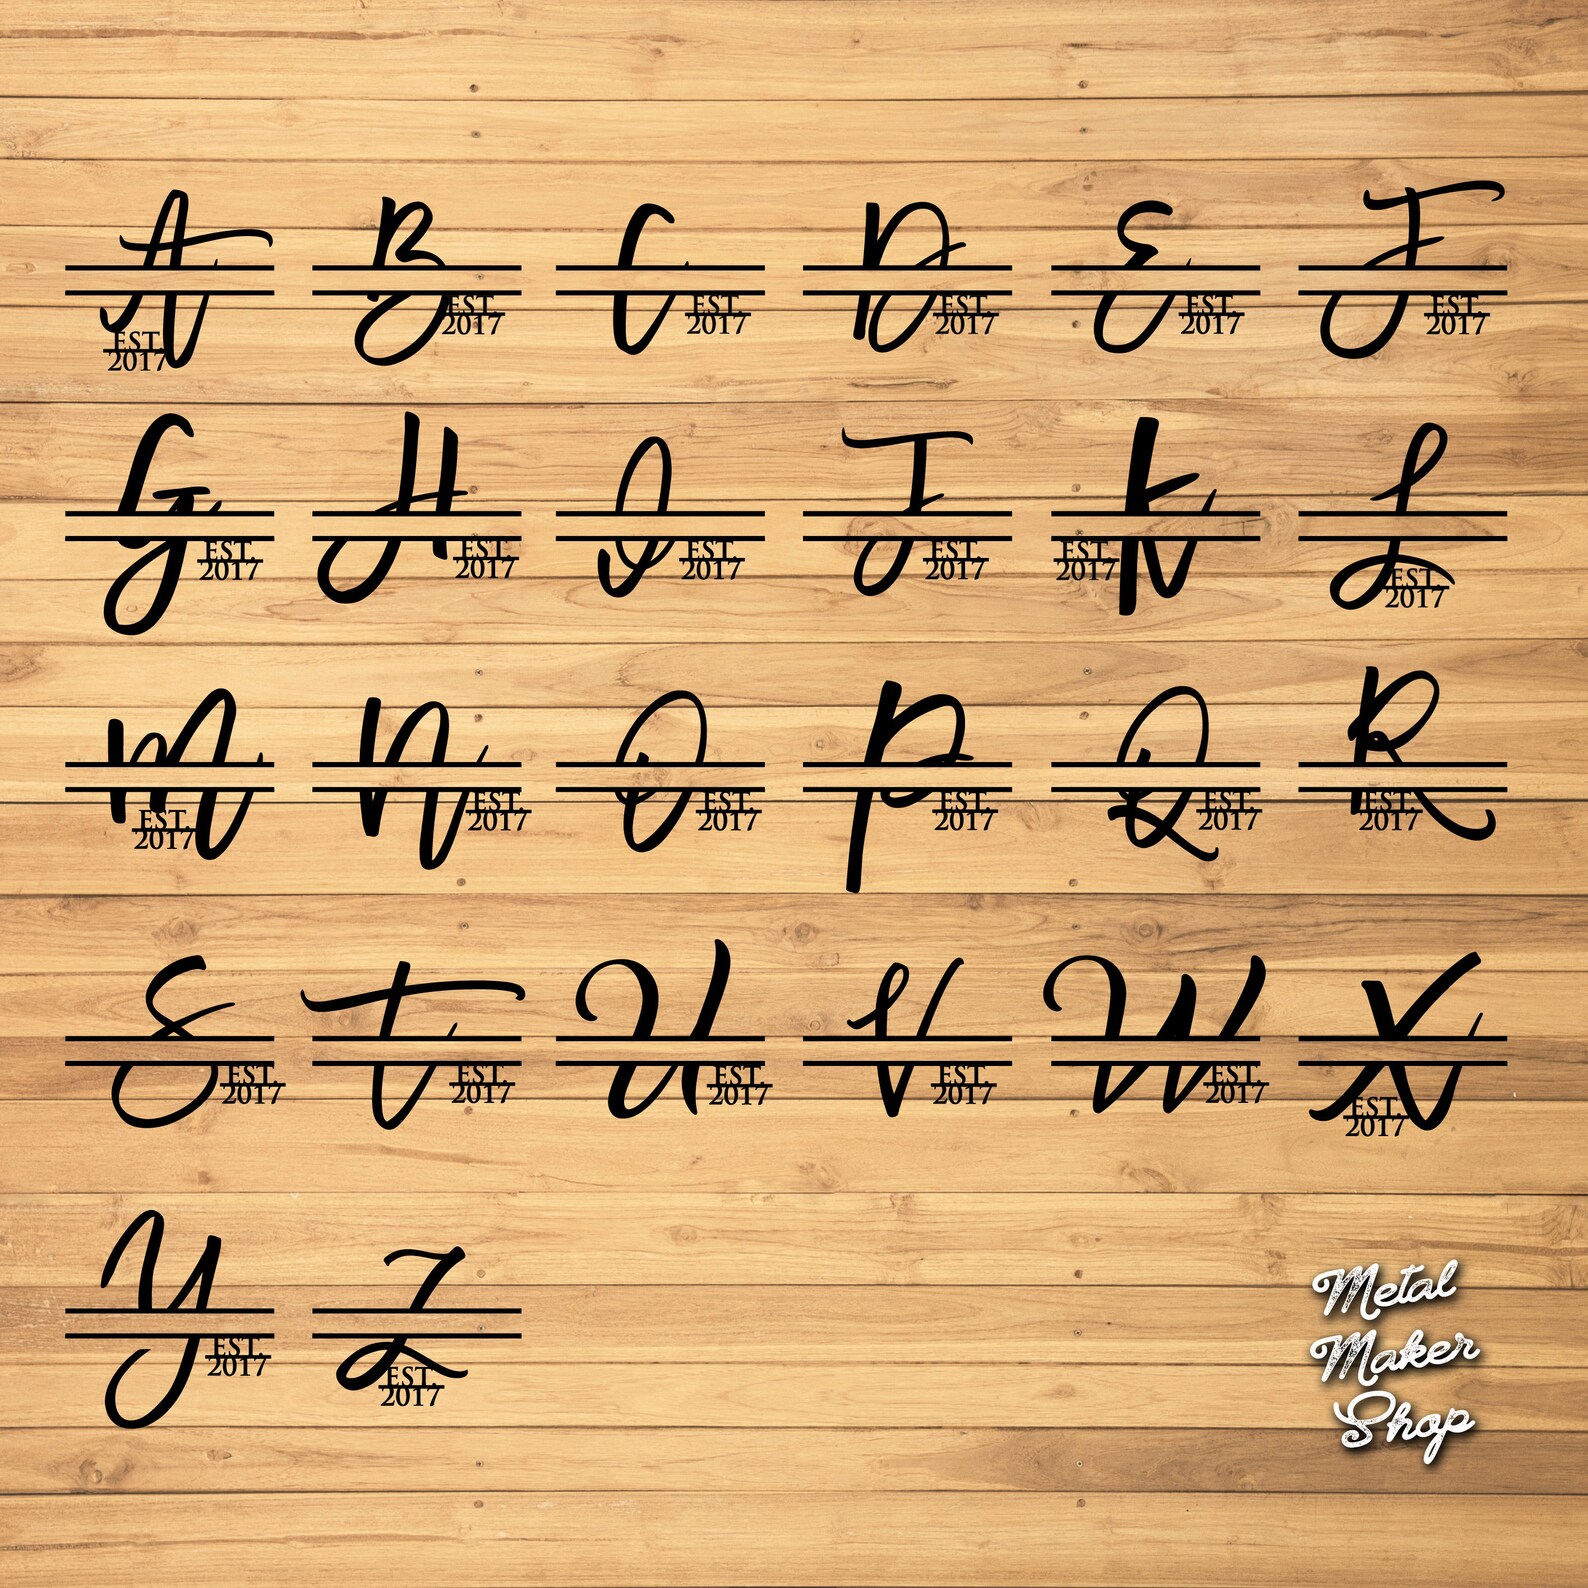 A B C D E F
EST. EST. EST. EST. EST. EST.
2017 2017 2017 2017 2017 2017
G H I J K L
EST. EST. EST. EST. EST. EST.
2017 2017 2017 2017 2017 2017
M N O P Q R
EST. EST. EST. EST. EST. EST.
2017 2017 2017 2017 2017 2017
S T U V W X
EST. EST. EST. EST. EST. EST.
2017 2017 2017 2017 2017 2017
Y Z
EST. EST.
2017 2017
Metal
Maker
Shop